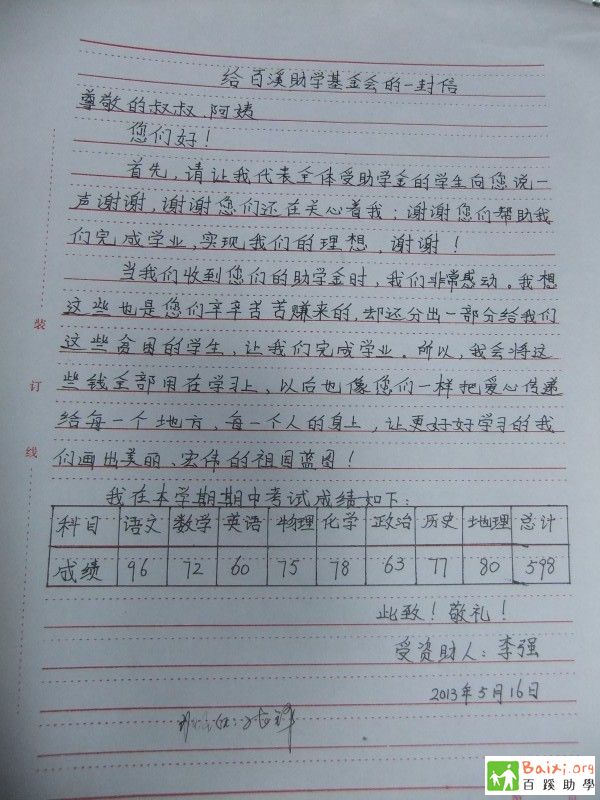 给百溪助学基金会的一封信
尊敬的叔叔、阿姨
您们好！
首先，请让我代表全体受助学金的学生向您说一
声谢谢，谢谢您们还在关心着我；谢谢您们帮助我
们完成学业，实现我们的理想，谢谢！
当我们收到您们的助学金时，我们非常感动。我想
这些也是您们辛辛苦苦赚来的，却还分出一部分给我们
这些贫困的学生，让我们完成学业。所以，我会将这
些钱全部用在学习上，以后也像您们一样把爱心传递
给每一个地方，每一个人的身上，让更好好学习的我
们画出美丽、宏伟的祖国蓝图！
我在本学期期中考试成绩如下：
科目 语文 数学 英语 物理 化学 政治 历史 地理 总计
成绩 96 72 60 75 78 63 77 80 598
此致！敬礼！
受资财人：李强
2013年5月16日
装
订
线
Baixi.org
百蹊助學